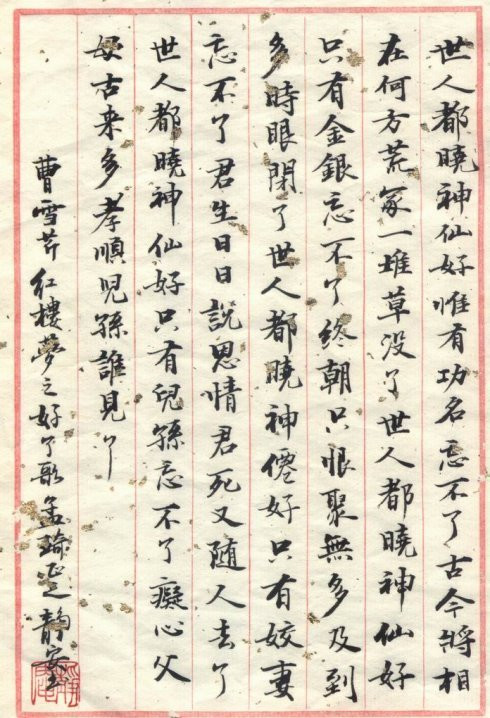 世人都曉神仙好惟有功名忘不了古今將相
在何方荒冢一堆草没了世人都曉神仙好
只有金銀忘不了終朝只恨聚無多及到
多時眼閉了世人都曉神僊好只有姣妻
忘不了君生日日説恩情君死又随人去了
世人都曉神仙好只有兒孫忘不了癡心父
母古来多孝順児孫誰見了
曹雪芹紅樓夢之好了歌孟瑜正之靜安